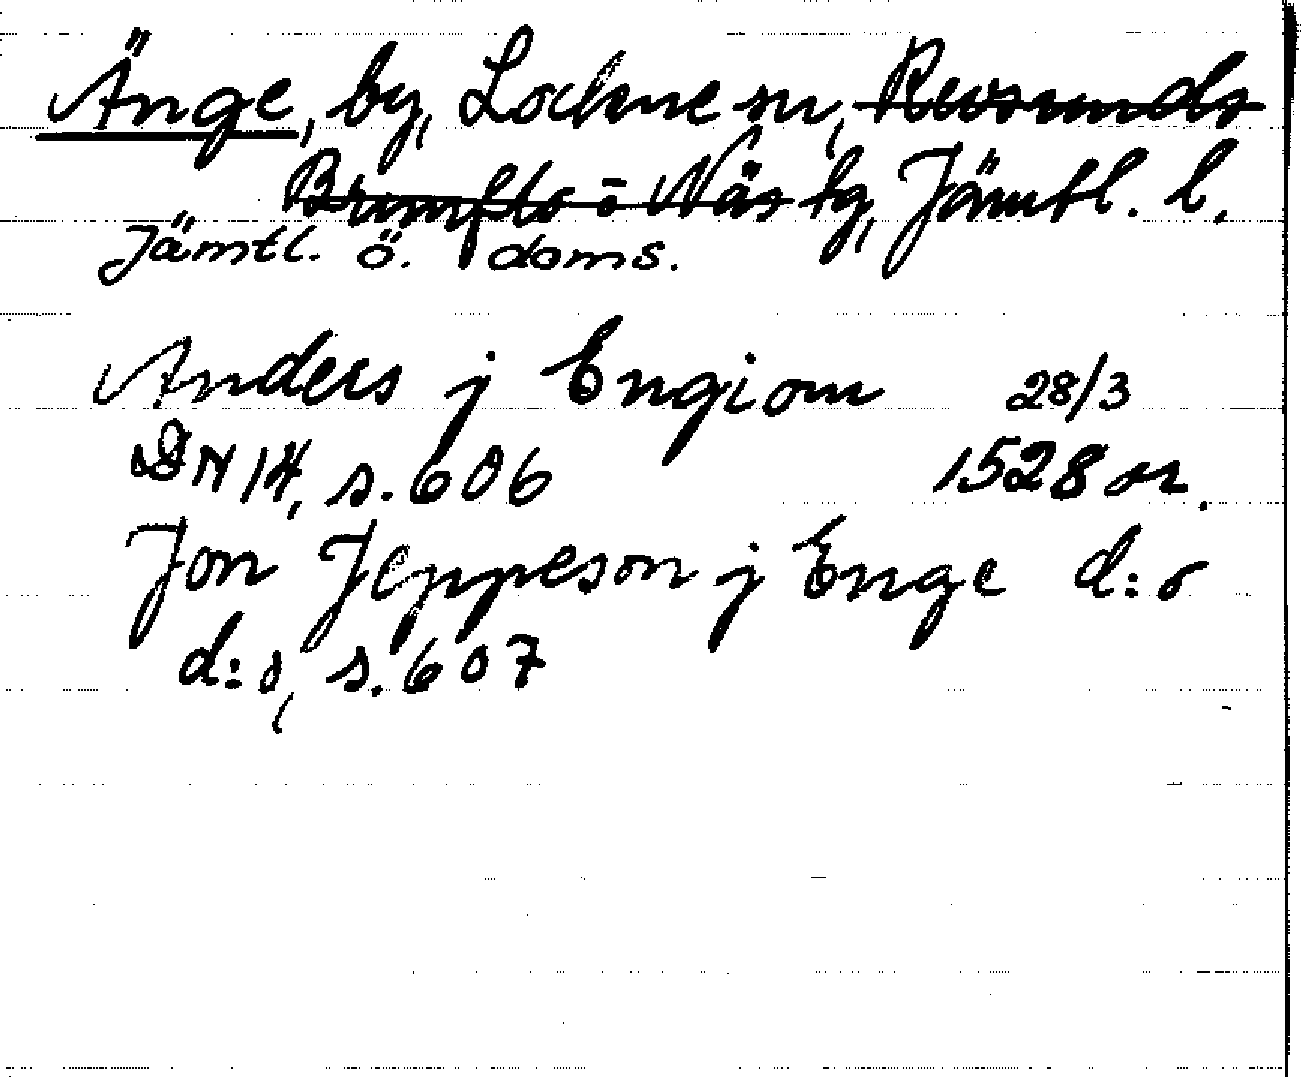 Änge, by, Lockne sn, Revsunds
Brunflo o Näs tg, Jämtl. l.
Jämtl. ö. doms.
Anders j Engiom 28/3
DN 14, s. 606 1528 or.
Jon Jeppeson j Enge d:o
d:o, s. 607